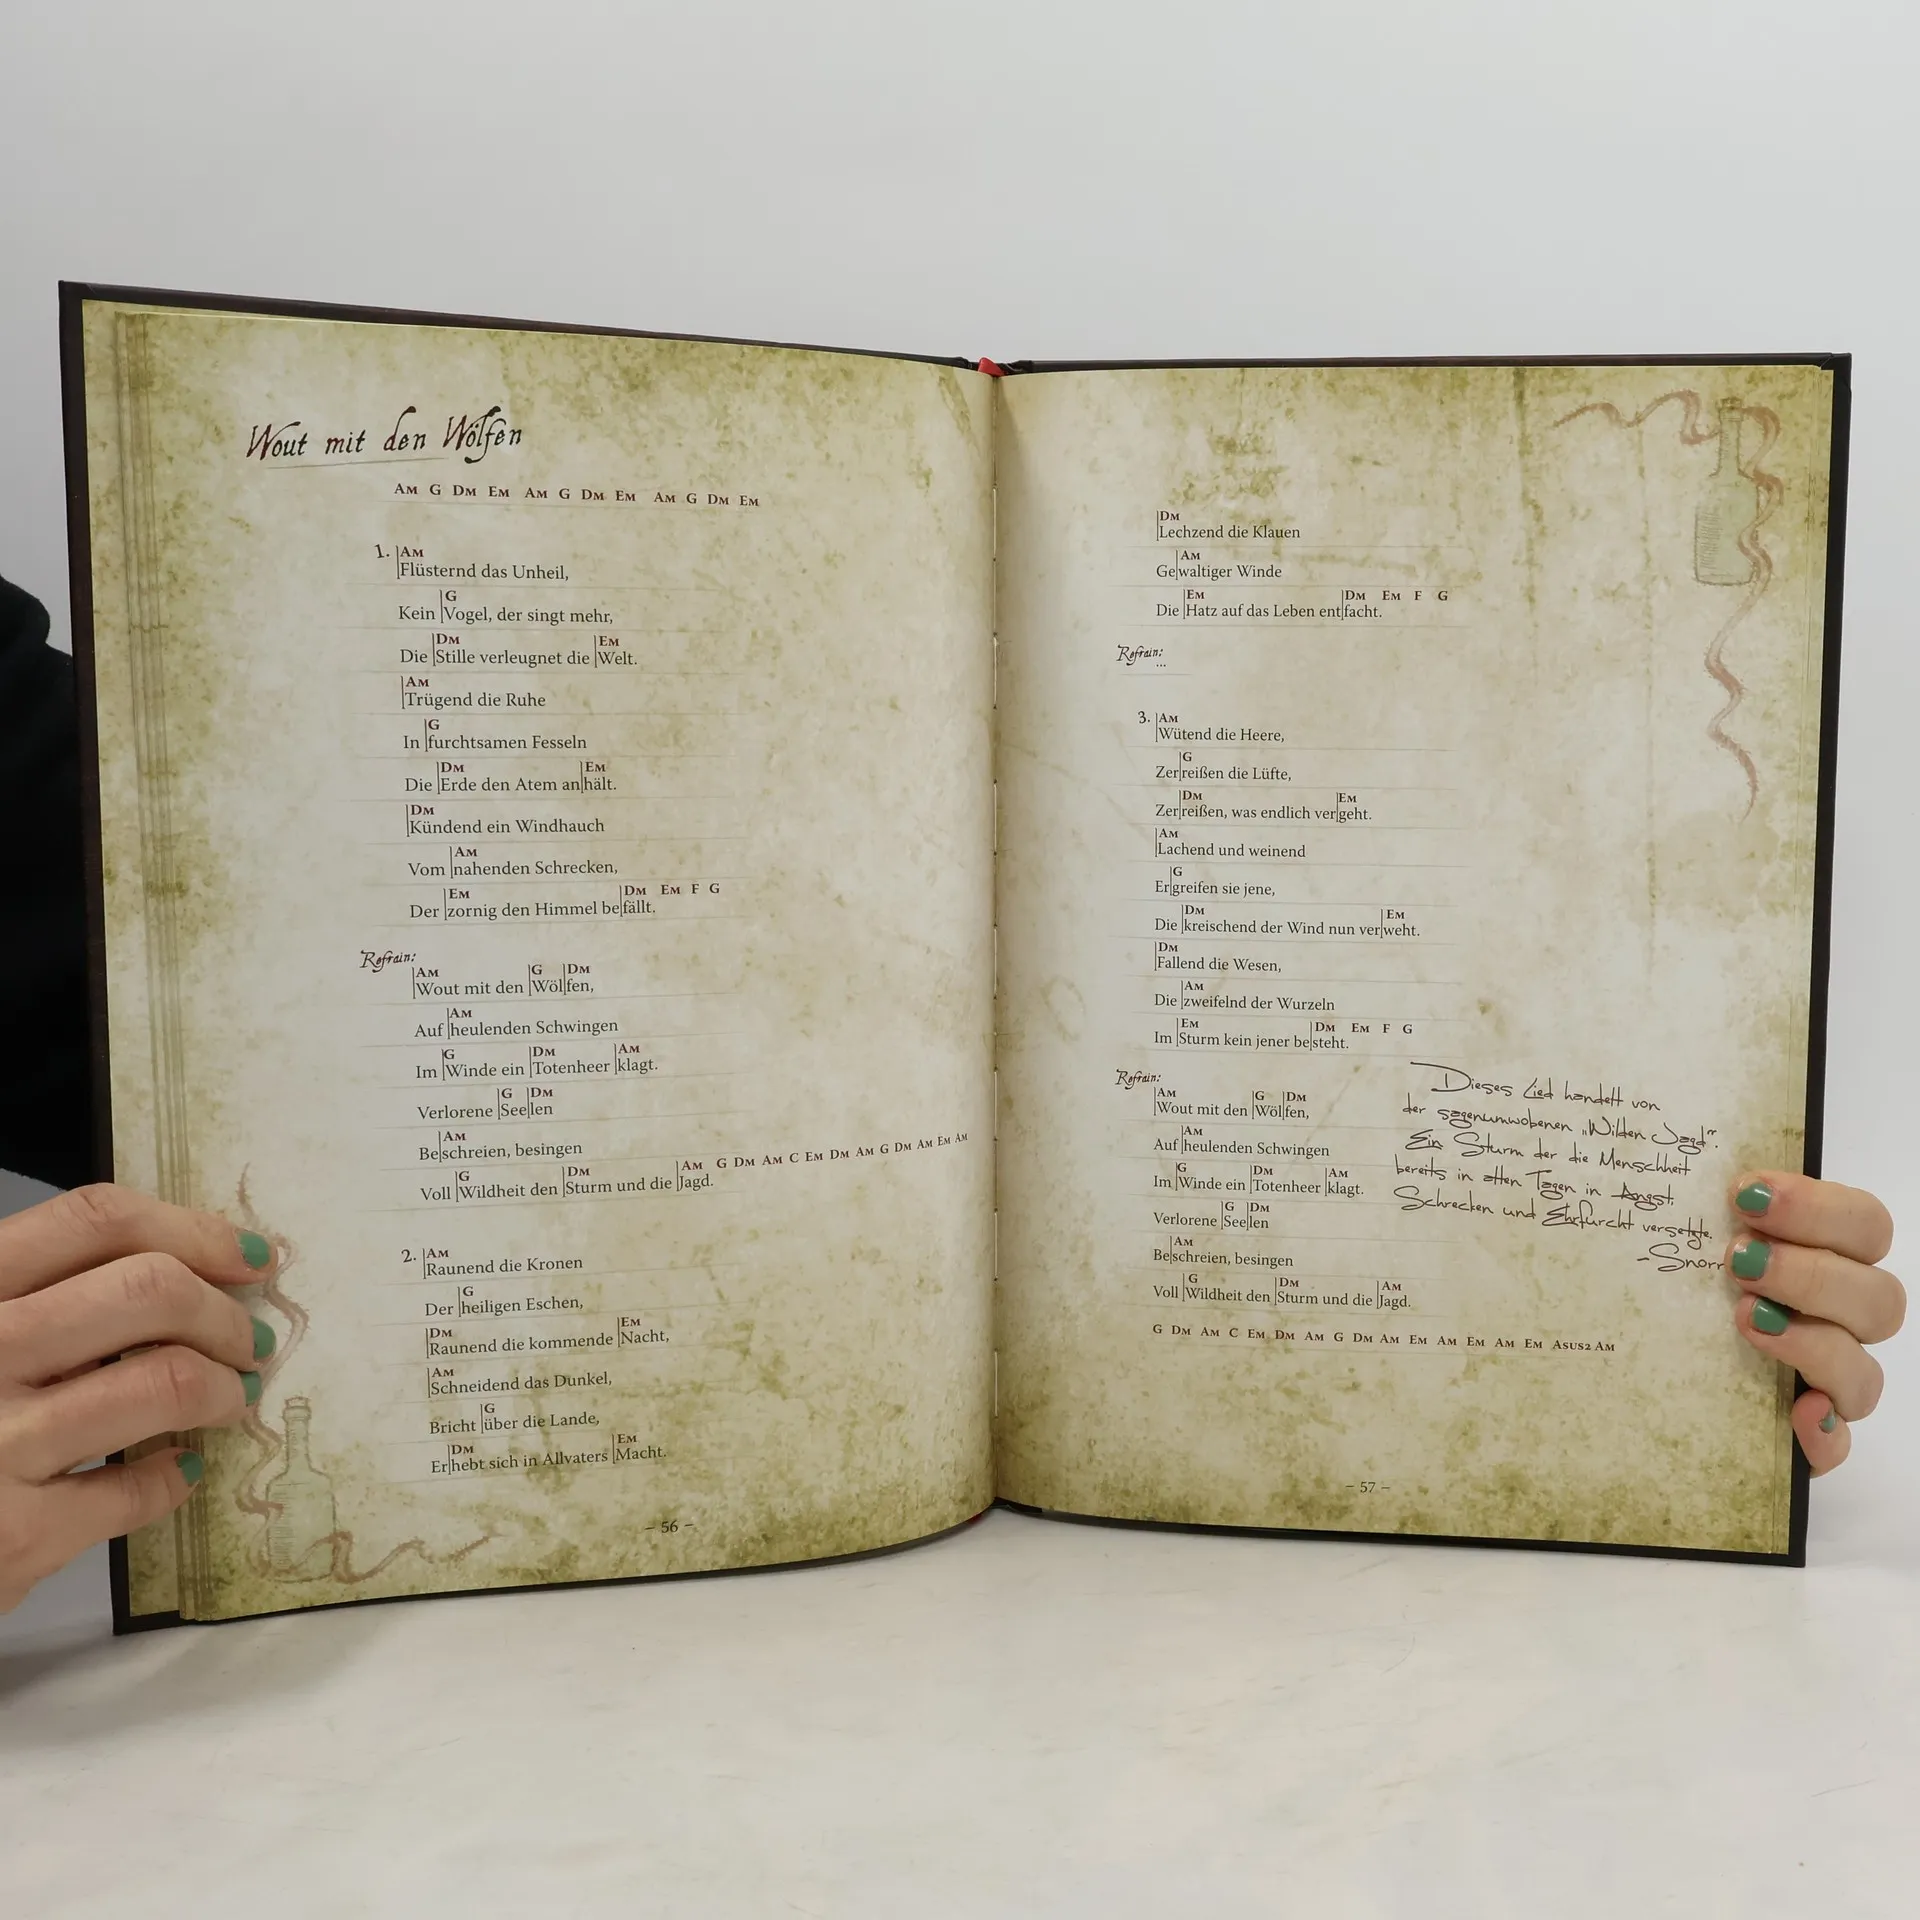 Wout mit den Wölfen
Am G Dm Em Am G Dm Em Am G Dm Em
1. Am
Flüsternd das Unheil,
G
Kein Vogel, der singt mehr,
Dm Em
Die Stille verleugnet die Welt.
Am
Trügend die Ruhe
G
In furchtsamen Fesseln
Dm Em
Die Erde den Atem anhält.
Dm
Kündend ein Windhauch
Am
Vom nahenden Schrecken,
Em Dm Em F G
Der zornig den Himmel befällt.
Refrain:
Am G Dm
Wout mit den Wölfen,
Am
Auf heulenden Schwingen
G Dm Am
Im Winde ein Totenheer klagt.
G Dm
Verlorene Seelen
Am
Beschreien, besingen
G Dm Am G Dm Am C Em Dm Am G Dm Am Em Am
Voll Wildheit den Sturm und die Jagd.
2. Am
Raunend die Kronen
G
Der heiligen Eschen,
Dm Em
Raunend die kommende Nacht,
Am
Schneidend das Dunkel,
G
Bricht über die Lande,
Dm Em
Erhebt sich in Allvaters Macht.
– 56 –
Dm
Lechzend die Klauen
Am
Gewaltiger Winde
Em Dm Em F G
Die Hatz auf das Leben entfacht.
Refrain:
...
3. Am
Wütend die Heere,
G
Zerreißen die Lüfte,
Dm Em
Zerreißen, was endlich vergeht.
Am
Lachend und weinend
G
Ergreifen sie jene,
Dm Em
Die kreischend der Wind nun verweht.
Dm
Fallend die Wesen,
Am
Die zweifelnd der Wurzeln
Em Dm Em F G
Im Sturm kein jener besteht.
Refrain:
Am G Dm
Wout mit den Wölfen,
Am
Auf heulenden Schwingen
G Dm Am
Im Winde ein Totenheer klagt.
G Dm
Verlorene Seelen
Am
Beschreien, besingen
G Dm Am
Voll Wildheit den Sturm und die Jagd.
G Dm Am C Em Dm Am G Dm Am Em Am Em Am Em Asus2 Am
Dieses Lied handelt von
der sagenumwobenen „Wilden Jagd“.
Ein Sturm der die Menschheit
bereits in alten Tagen in Angst,
Schrecken und Ehrfurcht versetzte.
-Snorr
– 57 –